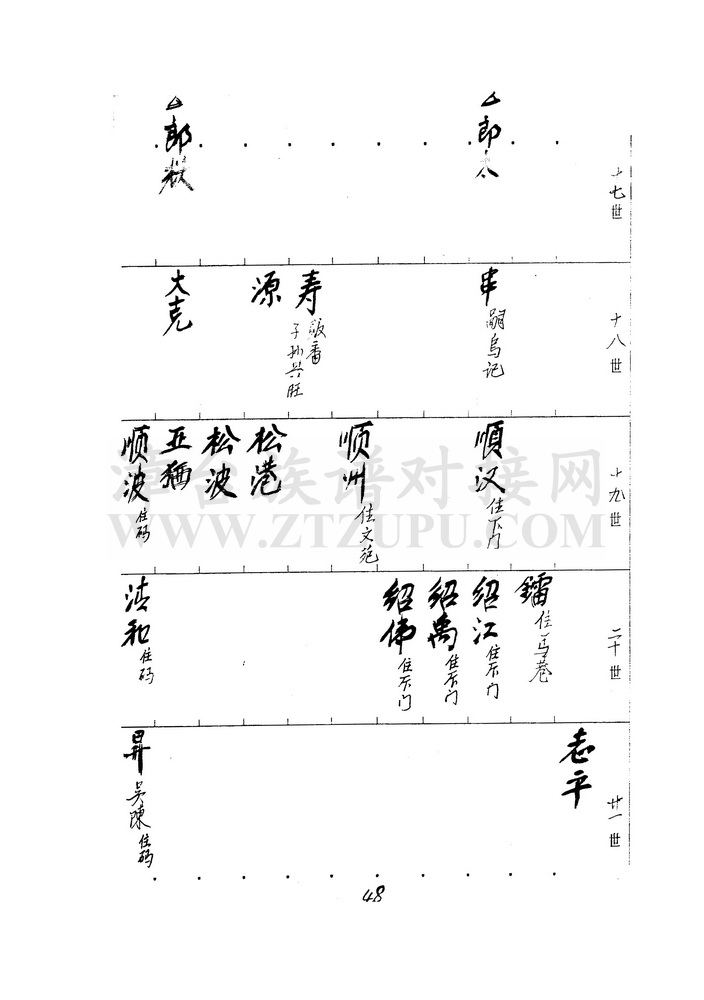 十七世
郎太
郎
十八世
串 嗣乌记
寿 飯番
子孙兴旺
源
大克
十九世
順汉 住下门
顺州 住文苑
松港
松波
亚
顺波 住码
二十世
鐳 住马巷
绍江 住下门
绍禹 住下门
绍伟 住下门
清和 住码
廿一世
志平
昇 吴陳 住码
48
漳台族谱对接网
WWW.ZTZUPU.COM